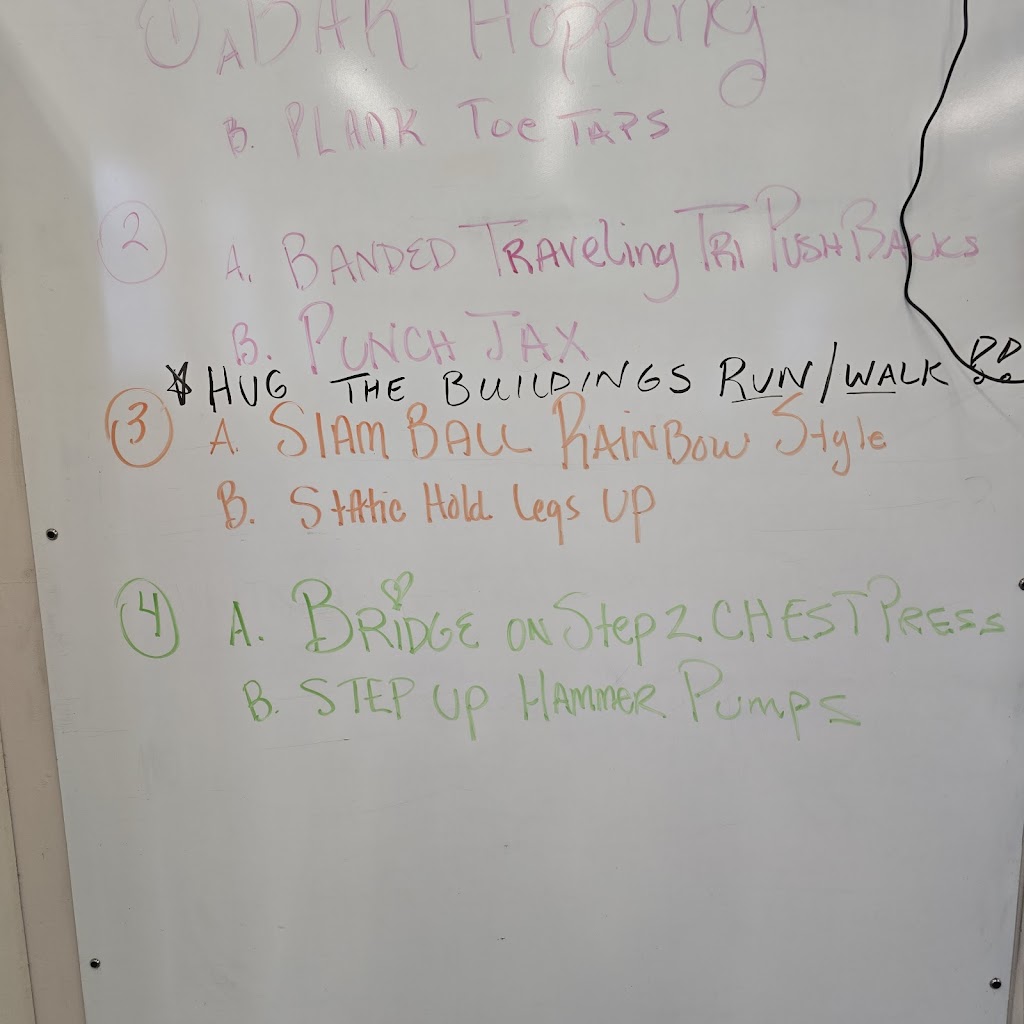 1 A BAR Hopping
B. PLANK Toe TAPS
2 A. BANDED TRAVeling TRI PUSH BACKS
B. PUNCH JAX
* HUG THE BUILDINGS RUN/WALK
3 A. SlAM BALL RAINBOW Style
B. Static Hold legs UP
4 A. BRIDGE ON Step 2 CHEST PRESS
B. STEP UP HAMMER PUMPS